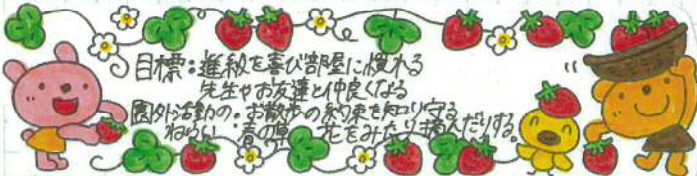 目標：進級を喜び部屋に慣れる
先生やお友達と仲良くなる
園外活動の：お散歩の約束を知り守る
ねらい 春の草、花をみたり摘んだりする。